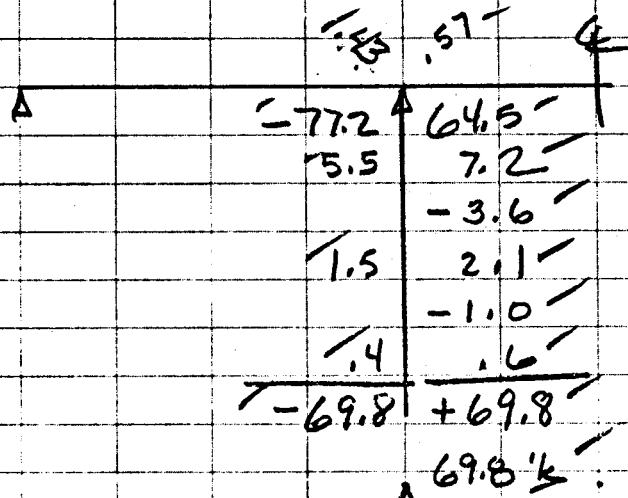 .43 .57 ℄
-77.2 64.5
5.5 7.2
-3.6
1.5 2.1
-1.0
.4 .6
-69.8 +69.8
69.8 'k